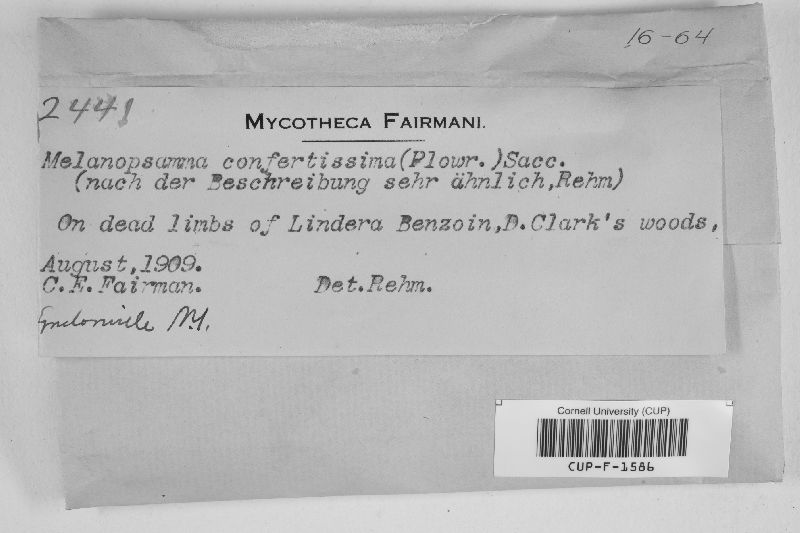 16-64
2441
MYCOTHECA FAIRMANI.
Melanopsamma confertissima(Plowr.)Sacc.
(nach der Beschreibung sehr ähnlich,Rehm)
On dead limbs of Lindera Benzoin,D.Clark's woods,
August,1909.
C.E.Fairman. Det.Rehm.
Lyndonville N.Y.
Cornell University (CUP)
CUP-F-1586